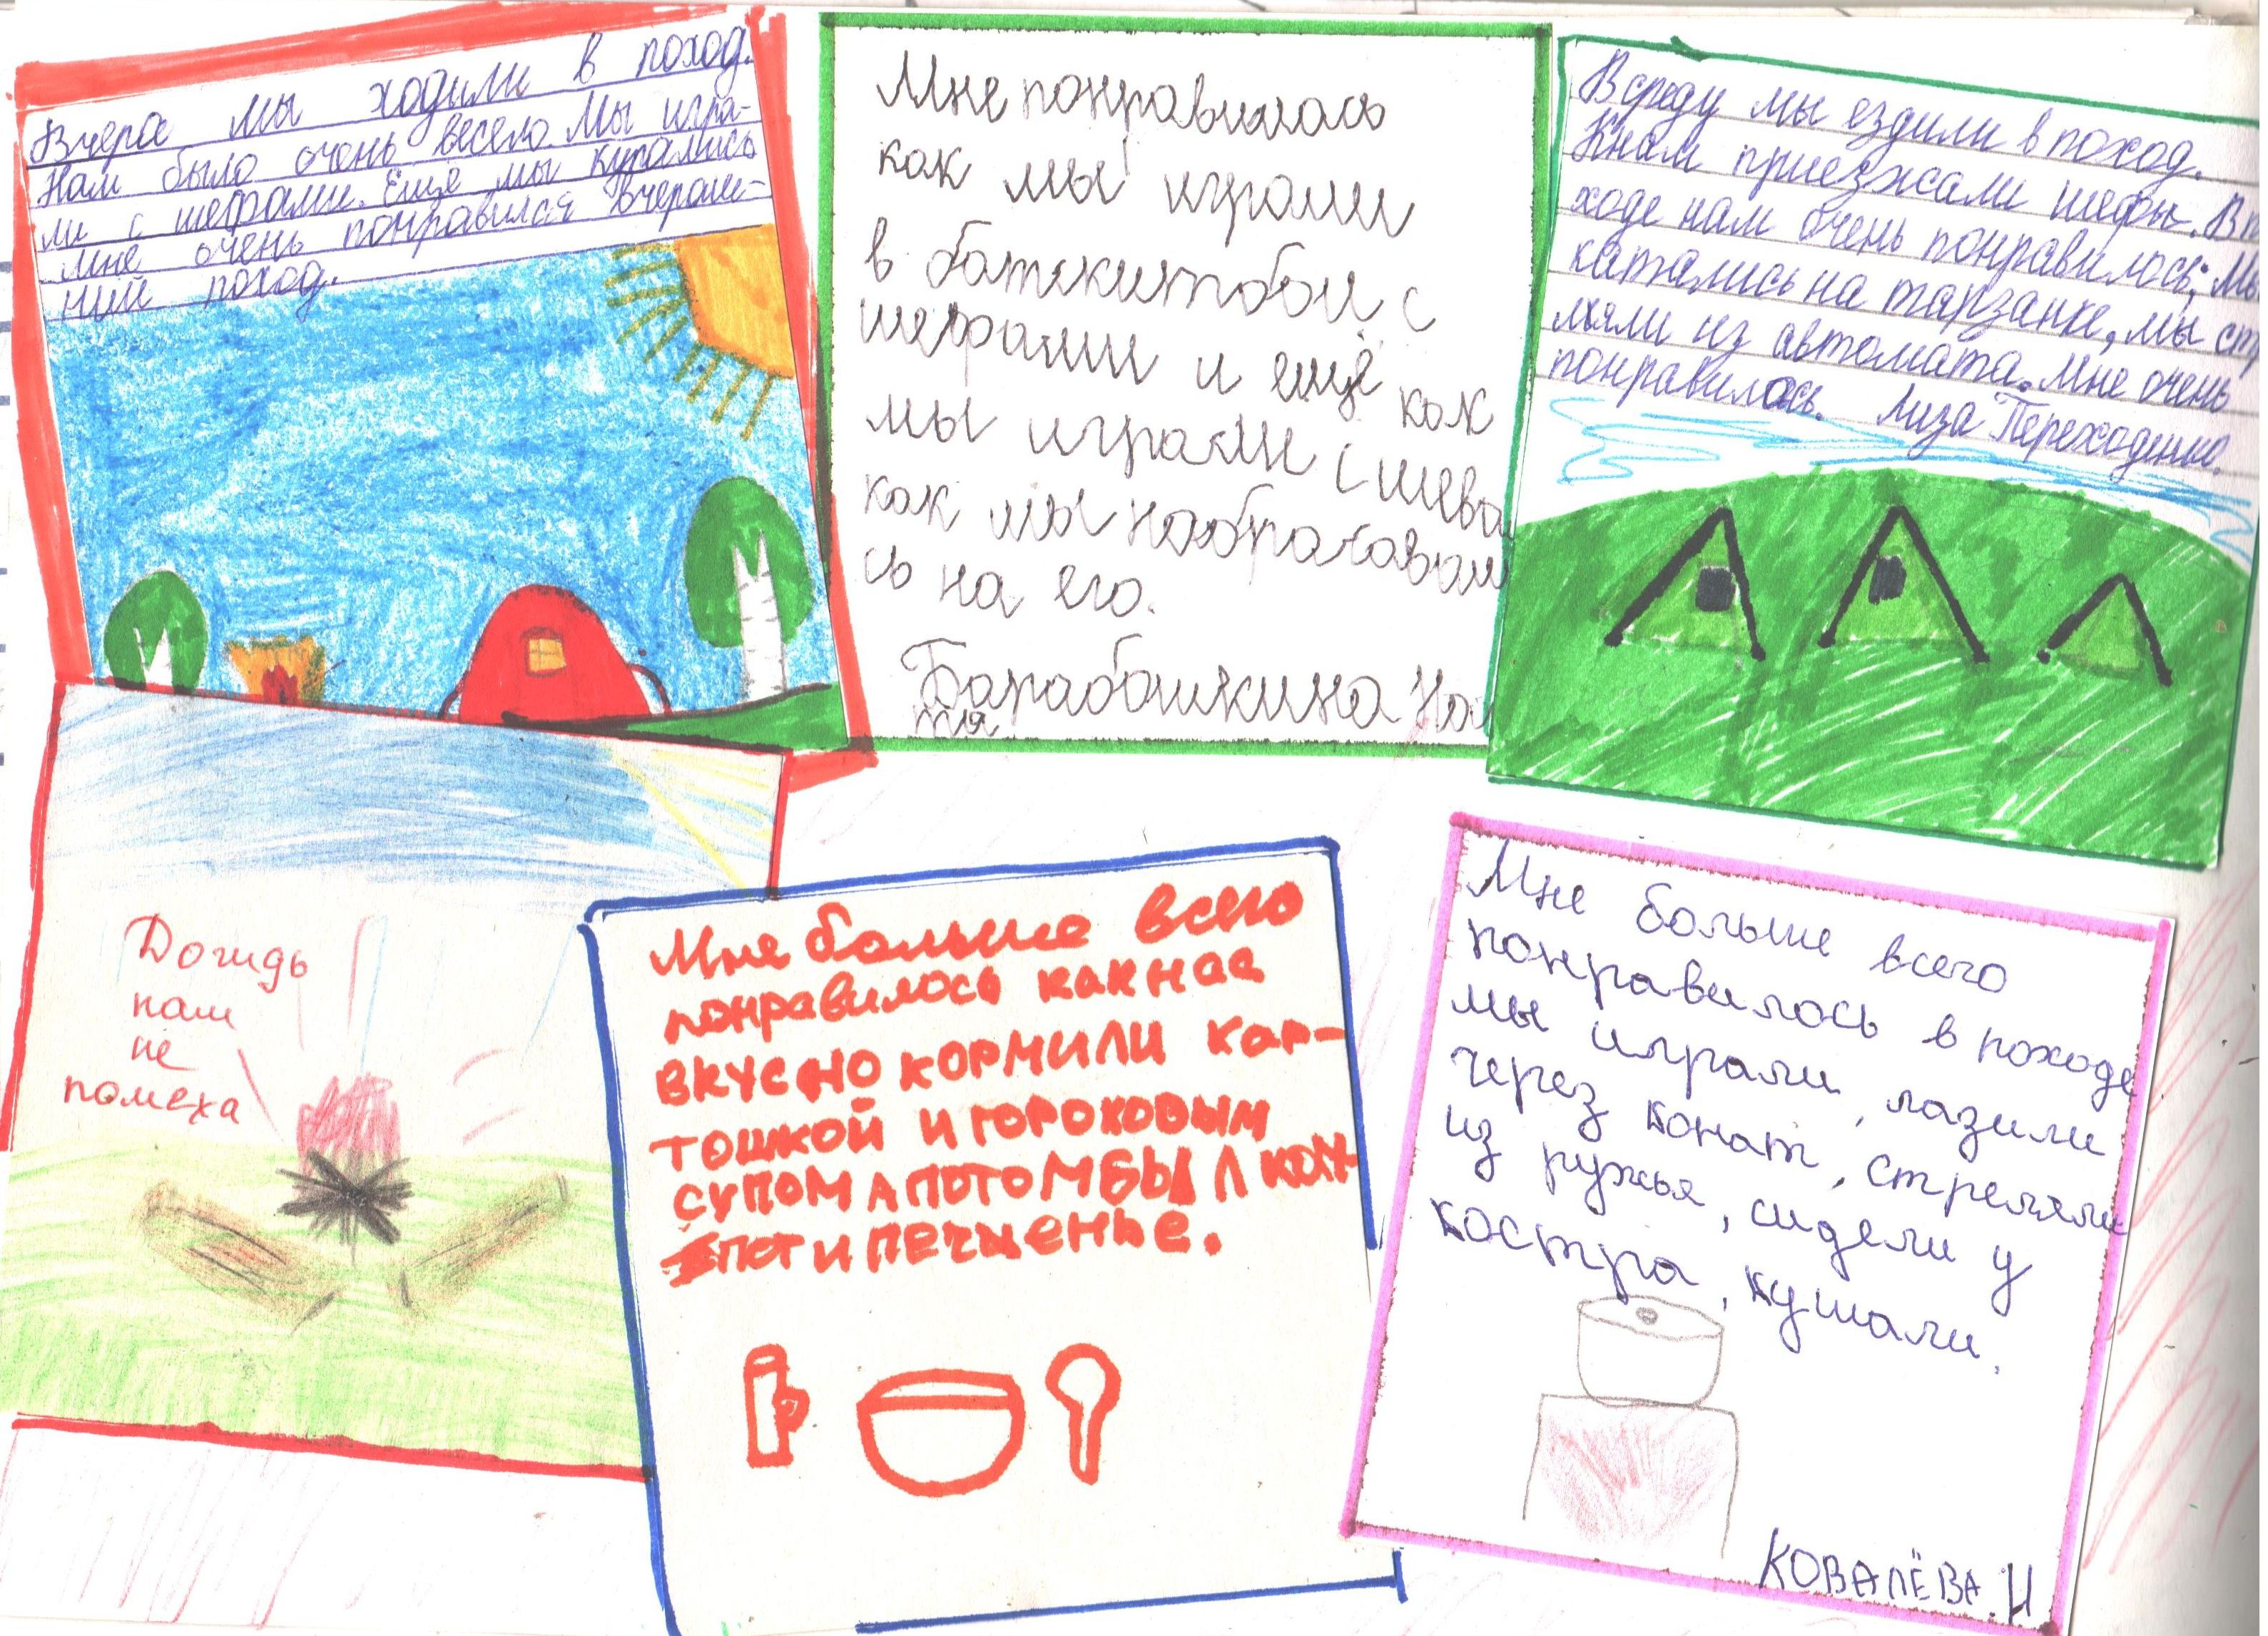 Вчера мы ходили в поход.
Нам было очень весело. Мы игра-
ли с шефами. Ещё мы купались
мне очень понравился вчераш-
ний поход.
Мне понравилось
как мы играли
в баткитбол с
шефами и ещё как
мы играли с шева
как мы набрасовали
сь на его.
Барабошкина Нас
тя
В среду мы ездили в поход.
К нам приезжали шефы. В по
ходе нам очень понравилось; мы
катались на тарзанке, мы стр
ляли из автомата. Мне очень
понравилось. Лиза Переходенко.
Дождь
нам
не
помеха
Мне больше всего
понравилось как нас
вкусно кормили кар-
тошкой и гороховым
супом а потом был ком
пот и печенье.
Мне больше всего
понравилось в походе
мы играли, лазили
через конат, стреляли
из ружья, сидели у
костра, кушали.
КОВАЛЁВА. И